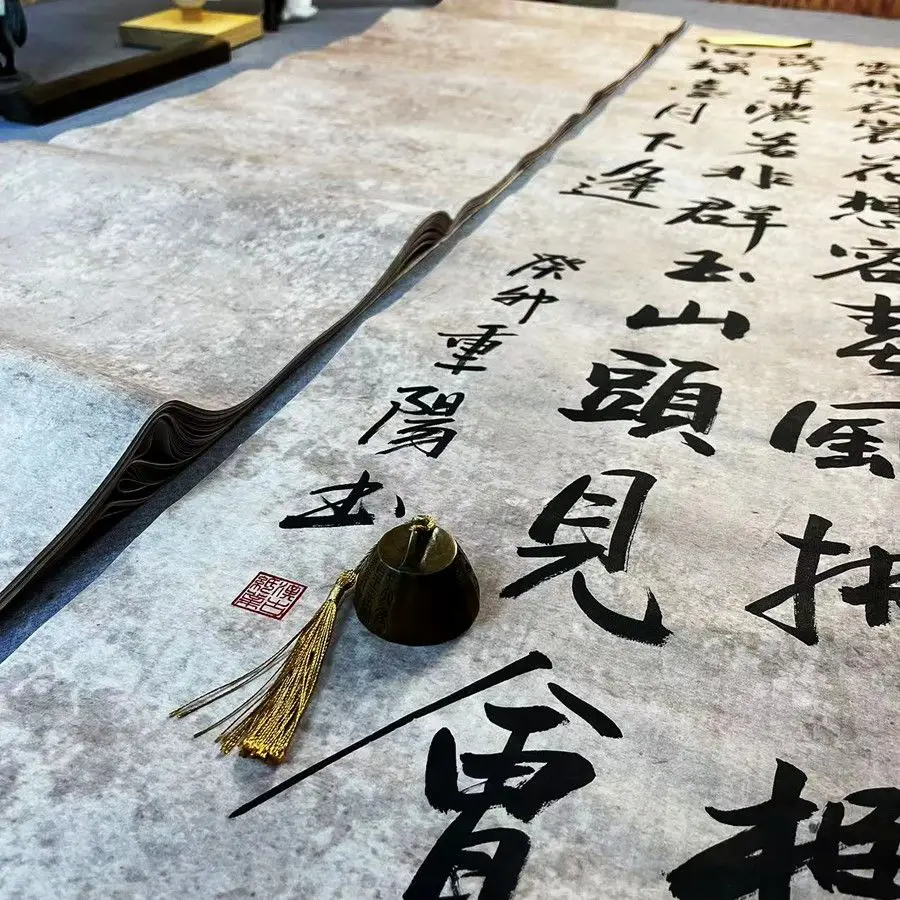 雲想衣裳花想容春風拂檻
露華濃若非群玉山頭見會
向瑤臺月下逢
癸卯重陽書